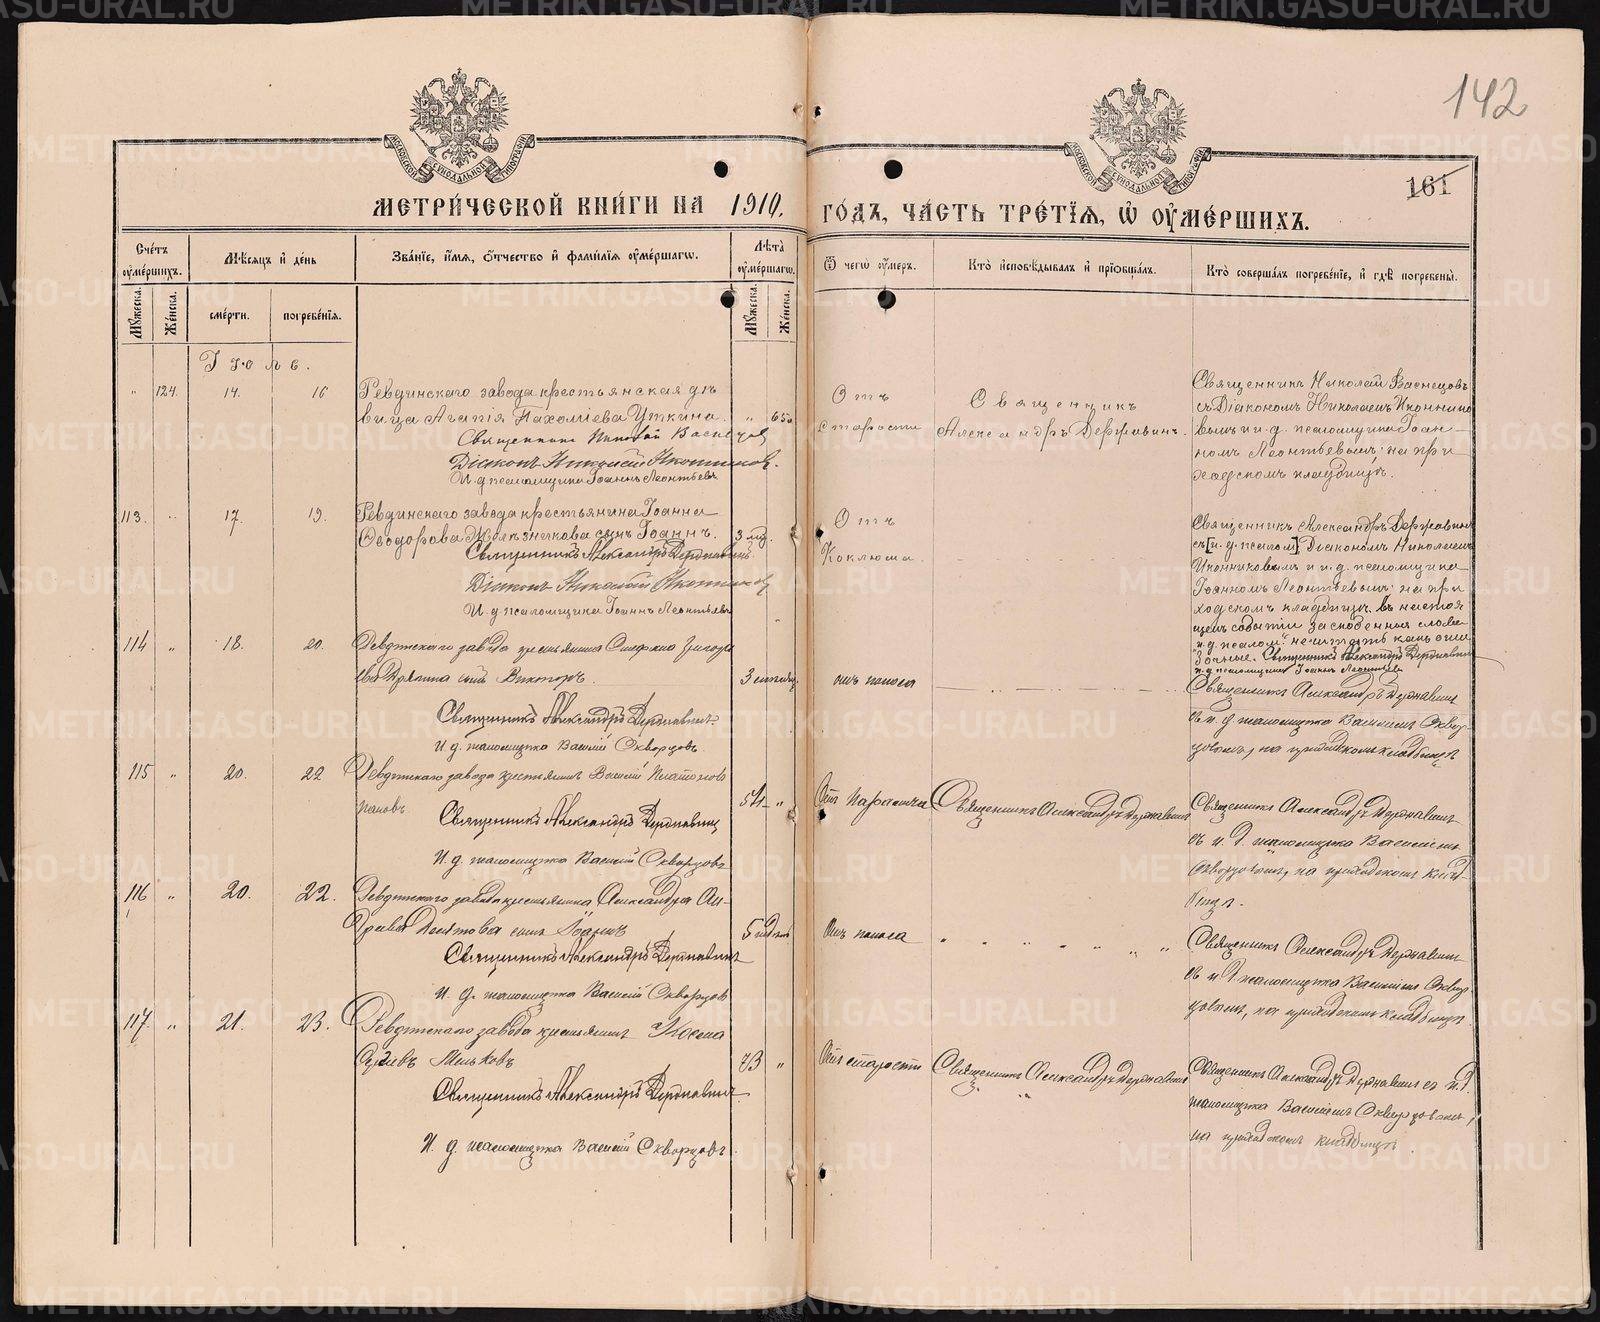 142
161
МОСКОВСКОЙ СѴНОДАЛЬНОЙ ТИПОГРАФІИ
МОСКОВСКОЙ СѴНОДАЛЬНОЙ ТИПОГРАФІИ
МЕТРИ́ЧЕСКОЙ КНИ́ГИ НА 1910. ГО́ДЪ, ЧА́СТЬ ТРЕ́ТЇѦ, Ѽ ОУ҆МЕ́РШИХЪ.
Сче́тъ оу҆ме́ршихъ.
Мѣ́сяцъ и҆ де́нь
Зва́нїе, и҆́мя, ѻ҆́тчество и҆ фами́лїя оу҆ме́ршагѡ.
Лѣ́та оу҆ме́ршагѡ.
Ѿ чегѡ̀ оу҆́меръ.
Кто̀ и҆сповѣ́дывалъ и҆ прїѡбща́лъ.
Кто̀ соверша́лъ погребе́нїе, и҆ гдѣ̀ погребены̀.
Мꙋ́жеска.
Же́нска.
сме́рти.
погребе́нїя.
Мꙋ́жеска.
Же́нска.
Іюль.
" 124. 14. 16
Ревдинскаго завода крестьянская дѣ
вица Агапія Пахоміева Уткина. " 65
Священникъ Николай Васнецов
Діаконъ Николай Иконников.
И. д. псаломщика Іоаннъ Леонтьевъ
Отъ
старости
Священникъ
Александръ Державинъ.
Священникъ Николай Васнецовъ
съ Діакономъ Николаемъ Иконнико
вымъ и и. д. псаломщика Іоан
номъ Леонтьевымъ на при
ходскомъ кладбищѣ.
113. " 17. 19.
Ревдинскаго завода крестьянина Іоанна
Ѳеодорова Желѣзникова сынъ Іоаннъ. 3 мѣ.
Священникъ Александръ Державинъ
Діаконъ Николай Иконников
И. д. псаломщика Іоаннъ Леонтьевъ
Отъ
Коклюша.
Священникъ Александръ Державинъ
съ [и. д. псалом] Діакономъ Николаемъ
Иконниковымъ и и. д. псаломщика
Іоанномъ Леонтьевымъ на при
ходскомъ кладбищѣ. въ настоя
щемъ событіи заскобенныя слова
"и. д. псалом" не читать какъ оши
бочные. Священникъ Александръ Державинъ
и. д. псаломщика Іоаннъ Леонтьевъ
114 " 18. 20.
Ревдинскаго завода крестьянина
сынъ Викторъ. 3
Священникъ Александръ Державинъ
И. д. псаломщика Василій Скворцовъ.
отъ поноса
Священникъ Александръ Державинъ
съ и. д. псаломщика Василіемъ Сквор
цовымъ, на приходскомъ кладбищѣ
115 " 20. 22
Ревдинскаго завода крестьянинъ Василій Платонов
"
Священникъ Александръ Державинъ
И. д. псаломщика Василій Скворцовъ
Отъ Паралича
Священникъ Александръ Державинъ
Священникъ Александръ Державинъ
съ и. д. псаломщика Василіемъ
Скворцовымъ, на приходскомъ клад-
бищѣ.
116 " 20. 22.
Ревдинскаго завода крестьянина Александра Ан-
дреева сынъ Іоаннъ 5
Священникъ Александръ Державинъ
И. д. псаломщика Василій Скворцов
Отъ поноса
" " " " " " "
Священникъ Александръ Державинъ
съ и. д. псаломщика Василіемъ Сквор
цовымъ, на приходскомъ кладбищѣ.
117. " 21. 23.
Ревдинскаго завода крестьянинъ Косма
Мельковъ 73 "
Священникъ Александръ Державинъ
И. д. псаломщика Василій Скворцовъ.
Отъ старости
Священникъ Александръ Державинъ
Священникъ Александръ Державинъ съ и. д.
псаломщика Василіемъ Скворцовымъ,
на приходскомъ кладбищѣ
METRIKI.GASO-URAL.RU